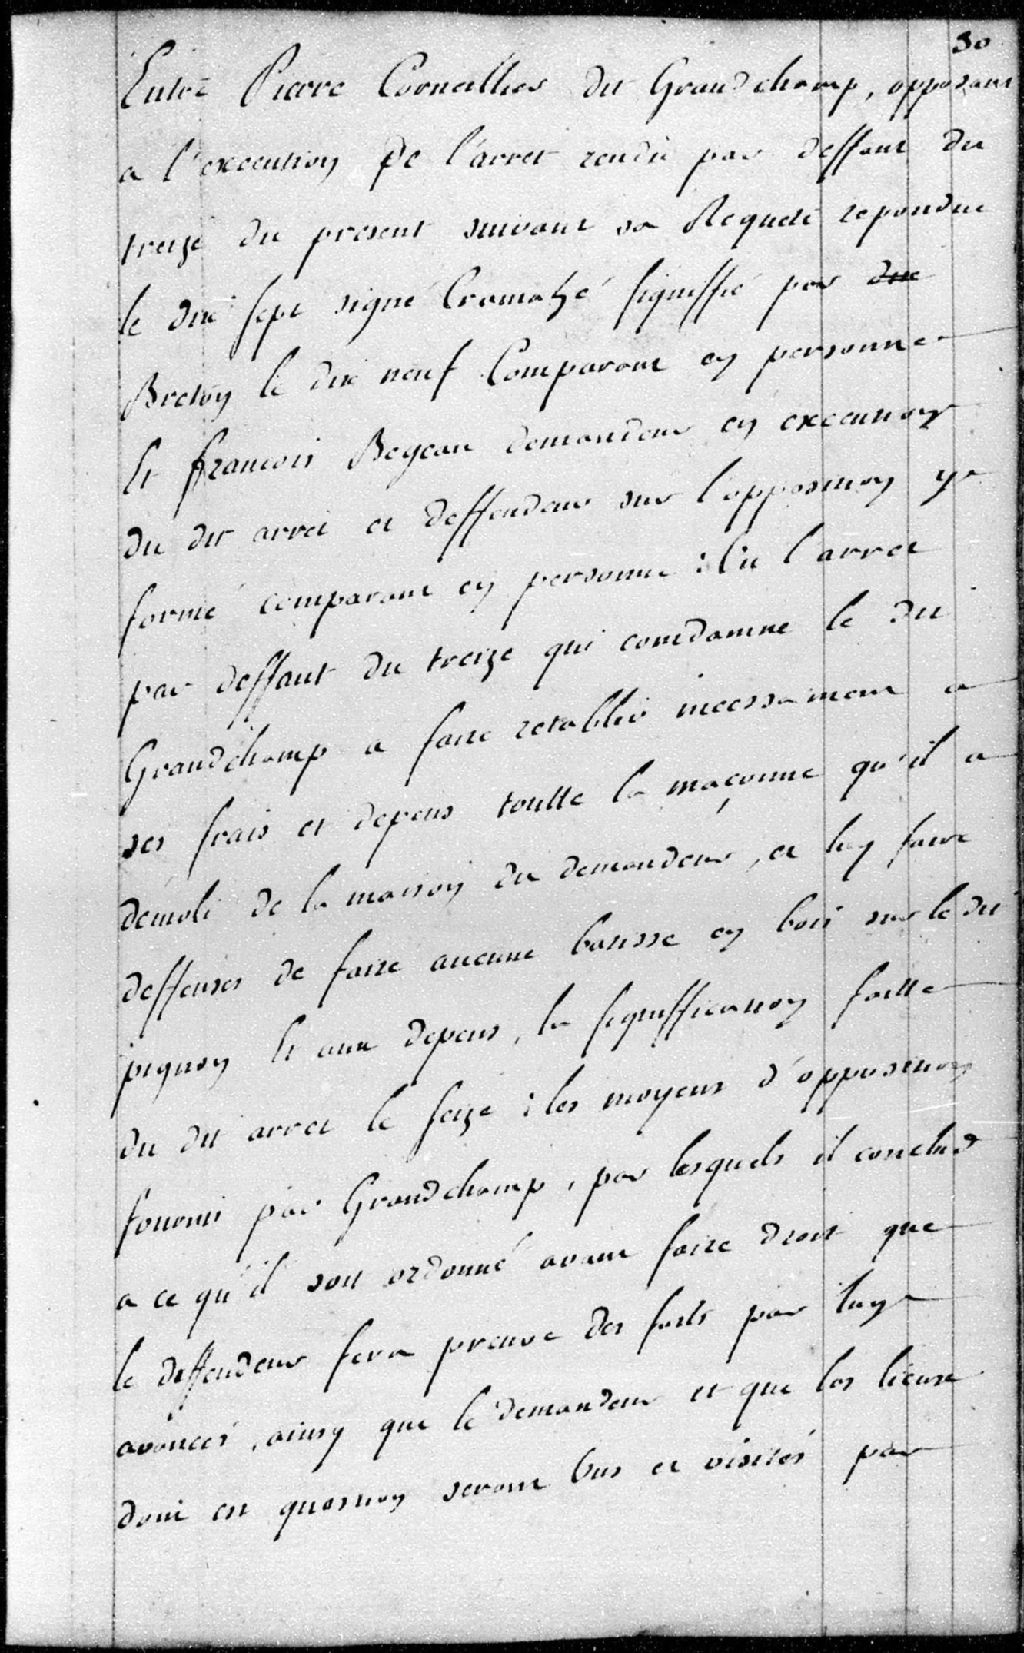 30
Entre Pierre Corneillier dit Grandchamp, opposant
a l'execution de l'arret rendu par deffaut du
treize du present suivant sa Requete repondue
le dix sept signé Cramahé signiffié par due
Breton le dix neuf Comparant en personne
Et francois Begeau demandeur en execution
du dit arret et deffendeur sur l'opposition y
formé comparant en personne : Vu l'arret
par deffaut du treize qui condamne le dit
Grandchamp a faire retablir incessament a
ses frais et depens toutte la maçonne qu'il a
démoli de la maison du demandeur, et luy faire
deffenses de faire aucune batisse en bois sur le dit
pignon Et aux depens, la signiffication faitte
du dit arret le seize : les moyens d'opposition
fournis par Grandchamp, par lesquels il conclud
a ce qu'il soit ordonné avant faire droit que
le deffendeur fera preuve des faits par luy
avancés, ainsy que le demandeur et que les lieux
dont est question seront Vus et visités par